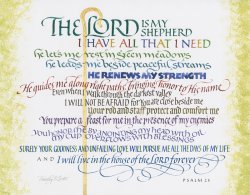 THE LORD IS MY
SHEPHERD
I HAVE ALL THAT I NEED
he lets me rest in green meadows
he leads me beside peaceful streams
HE RENEWS MY STRENGTH
He guides me along right paths bringing honor to His name
Even when I walk through the darkest valley
I WILL NOT BE AFRAID FOR YOU ARE close beside me
Your rod and staff protect and comfort me
You prepare a feast for me in the presence of my enemies
You honor me by anointing my head with oil
my cup overflows with blessings
SURELY YOUR GOODNESS AND UNFAILING LOVE WILL PURSUE ME ALL THE DAYS OF MY LIFE
AND I will live in the house of the LORD forever
PSALM 23